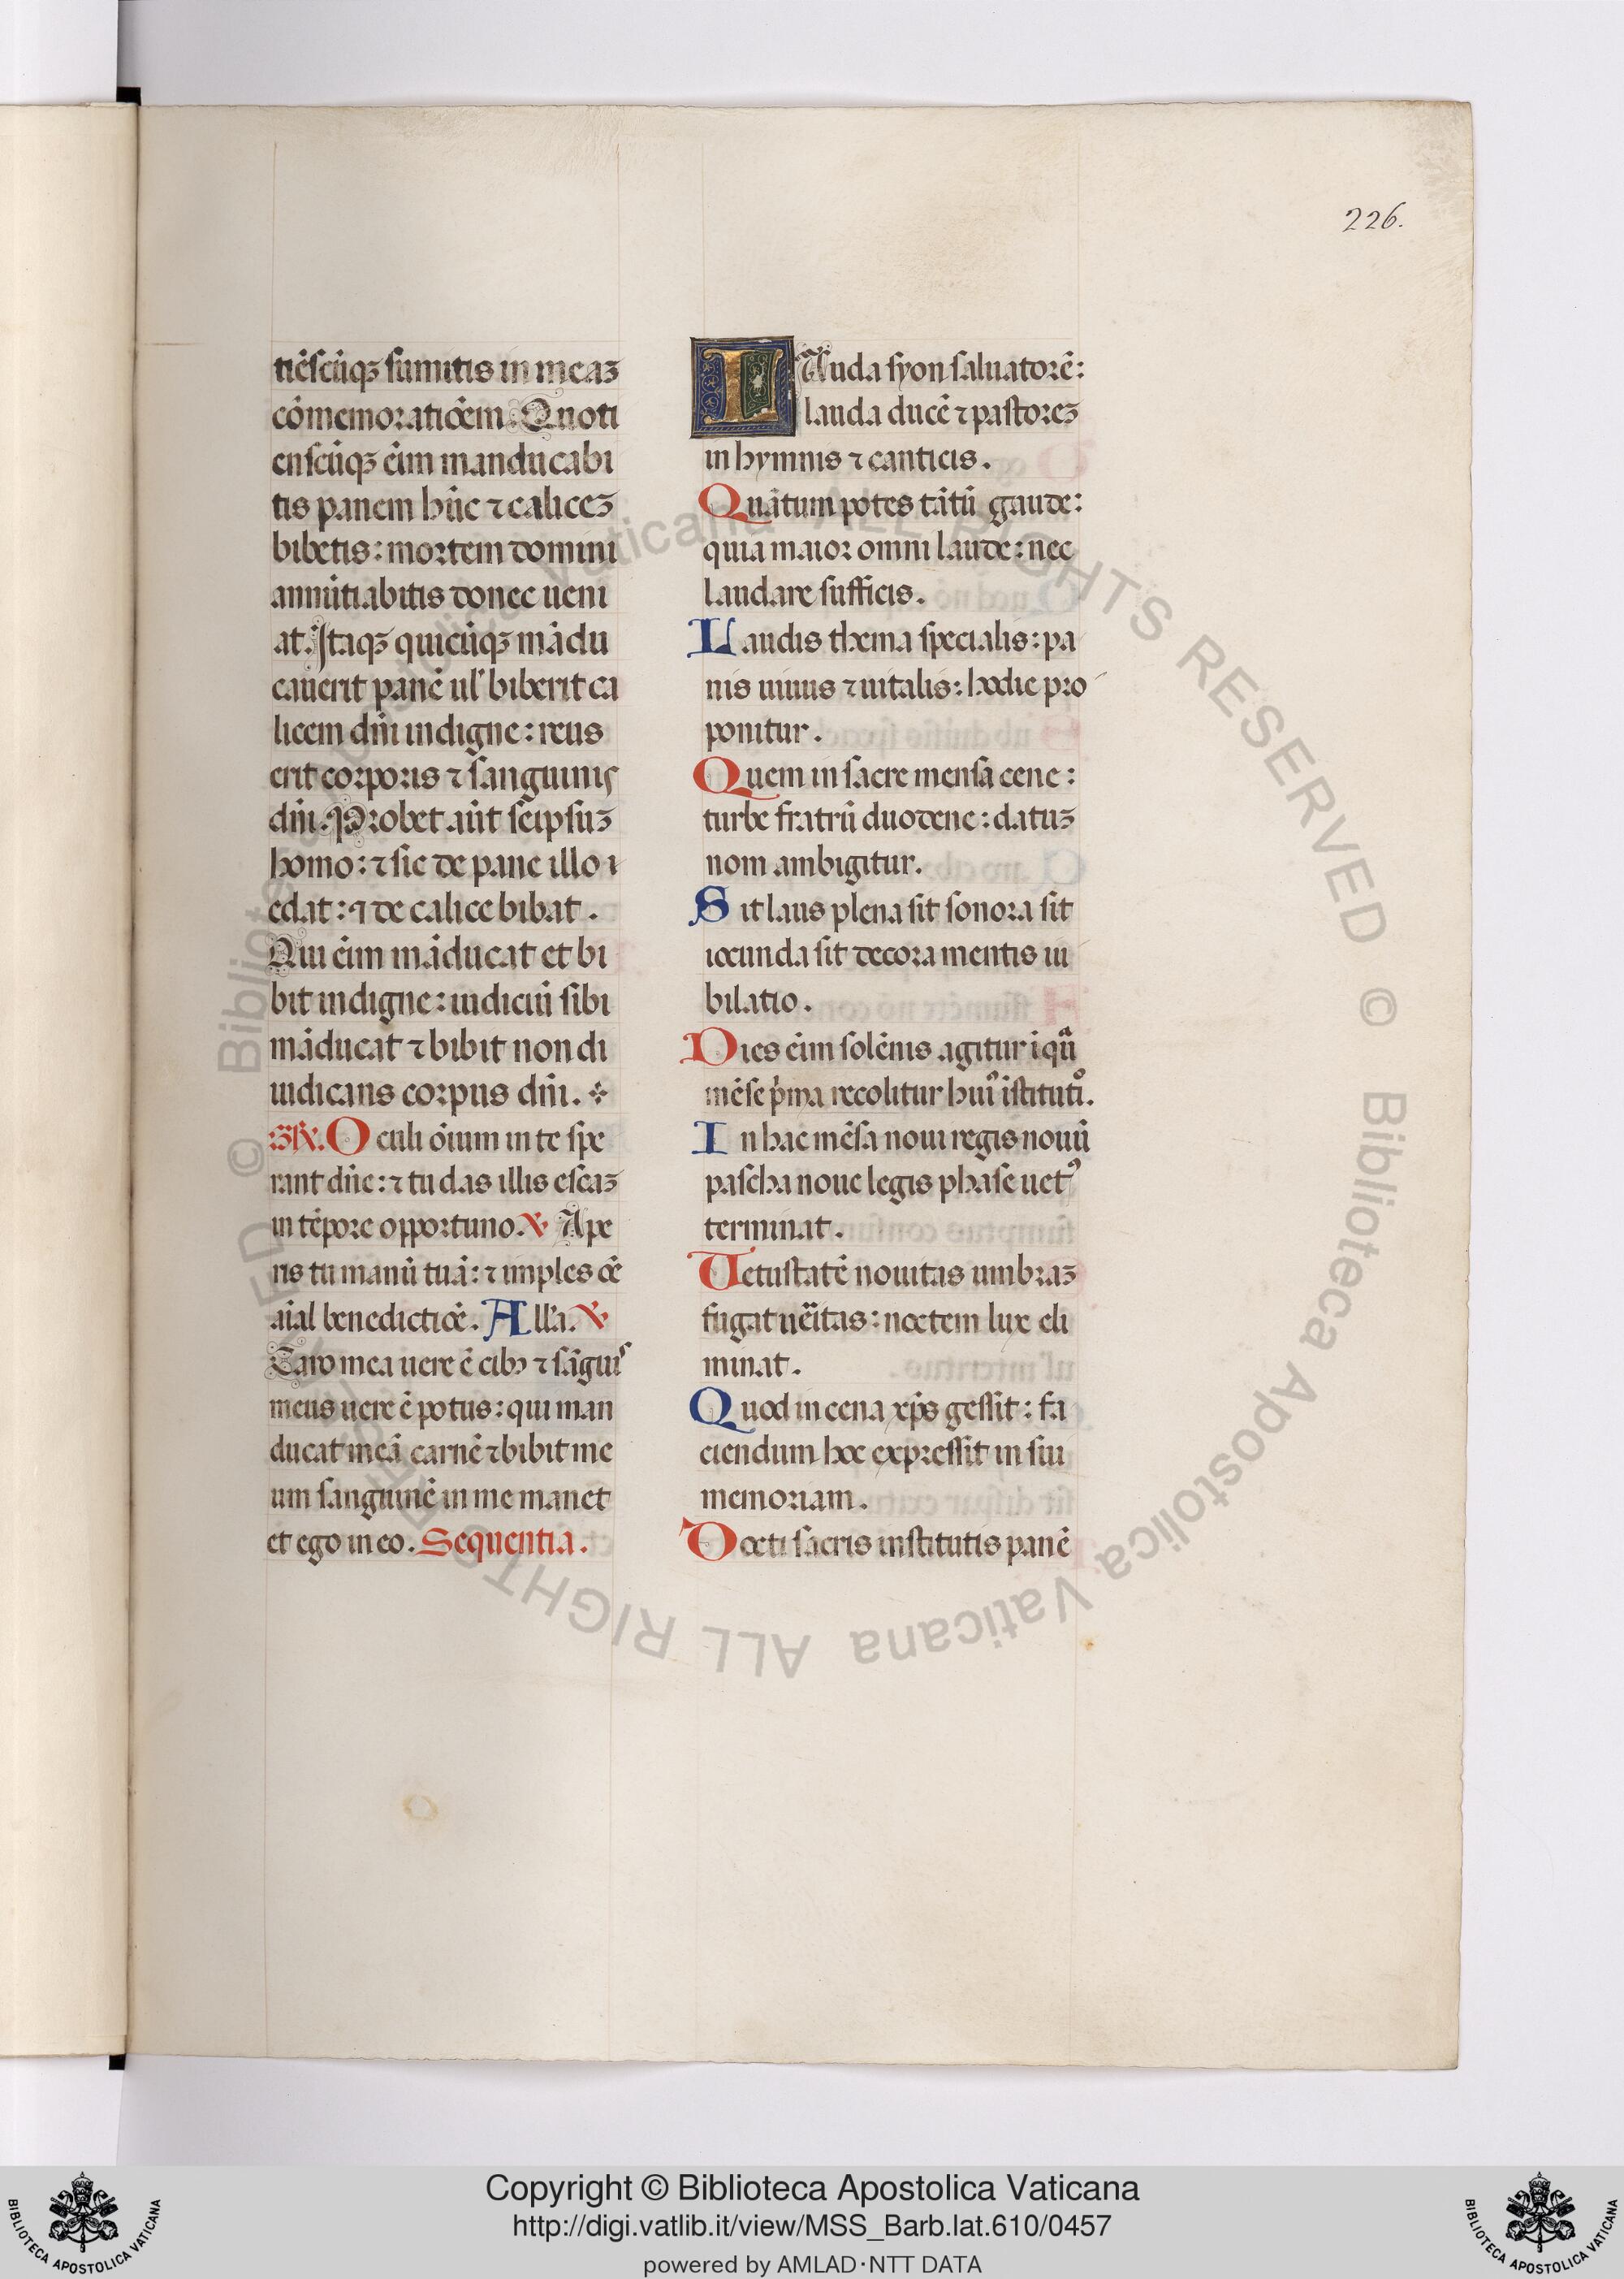 226.
tiēscūqꝫ sumitis in meaꝫ
cōmemoratiōem. Quoti
enscūqꝫ eīm manducabi
tis panem hūc ⁊ caliceꝫ
bibetis: mortem domini
annūtiabitis donec ueni
at. Itaqꝫ quicūqꝫ mādu
cauerit panē ul' biberit ca
licem dn̄i indigne: reus
erit corporis ⁊ sanguinis
dn̄i. Probet aūt seipsuꝫ
homo: ⁊ sic de pane illo
edat: ⁊ de calice bibat.
Qui eīm māducat et bi
bit indigne: iudiciū sibi
māducat ⁊ bibit non di
iudicans corpus dn̄i.
Oculi oīum in te spe
rant dn̄e: ⁊ tu das illis escaꝫ
in tēpore opportuno. ℣ Ape
ris tu manū tuā: ⁊ imples oē
aīal benedictiōe. All'a. ℣
Caro mea uere ē cibꝰ ⁊ sāguis
meus uere ē potus: qui man
ducat meā carnē ⁊ bibit me
um sanguinē in me manet
et ego in eo. Sequentia.
LAuda syon saluatorē:
lauda ducē ⁊ pastoreꝫ
in hymnis ⁊ canticis.
Quātum potes tātū gaude:
quia maior omni laude: nec
laudare sufficis.
Laudis thema specialis: pa
nis uiuus ⁊ uitalis: hodie pro
ponitur.
Quem in sacre mensa cene:
turbe fratrū duodene: datuꝫ
nom ambigitur.
Sit laus plena sit sonora sit
iocunda sit decora mentis iu
bilatio.
Dies eīm solēnis agitur ī qua
mēse p̄ma recolitur huiꝰ īstitutio.
In hac mēsa noui regis nouū
pascha noue legis phase uetꝰ
terminat.
Uetustatē nouitas umbraꝫ
fugat ueritas: noctem lux eli
minat.
Quod in cena xp̄s gessit: fa
ciendum hoc expressit in sui
memoriam.
Docti sacris institutis panē
© Biblioteca Apostolica Vaticana ALL RIGHTS RESERVED © Biblioteca Apostolica Vaticana ALL RIGHTS RESERVED
Copyright © Biblioteca Apostolica Vaticana
http://digi.vatlib.it/view/MSS_Barb.lat.610/0457
powered by AMLAD·NTT DATA
BIBLIOTECA APOSTOLICA VATICANA
BIBLIOTECA APOSTOLICA VATICANA